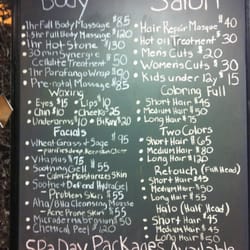 Body
1hr Full Body Massage $85
1.5hr Full Body Massage $120
1hr Hot Stone $130
30min Synergie
Cellulite Treatment $50
1hr Parafango Wrap $90
Pre-natal Massage $95
Waxing
Eyes $15 Lips $10
Chin $10 Cheeks $25
Underarms $10 Bikini $20
Facials
Wheat Grass + Sage $95
Vita plus $75
Soothing Gel $55
Calm + Moisturizes Skin
Soothe + Defend Hydragel
Problem Skin $55
Aha/Bha Cleansing Mousse
Acne Prone Skin $55
Microdermabrasion $50
Chemical Peel $120
Salon
Hair Repair Masque $40
Hot oil Treatment $30
Mens Cuts $20
Womens Cuts $30
Kids under 12, $15
Coloring Full
Short Hair $45
Medium Hair $50
Long Hair $75
Two Colors
Short Hair $85
Medium Hair $80
Long Hair $120
Retouch (Full Head)
Short Hair $45
Medium Hair $50
Long Hair
Halo (Half Head)
Short Hair $45
Medium Hair
Long Hair
Spa Day Packages Available